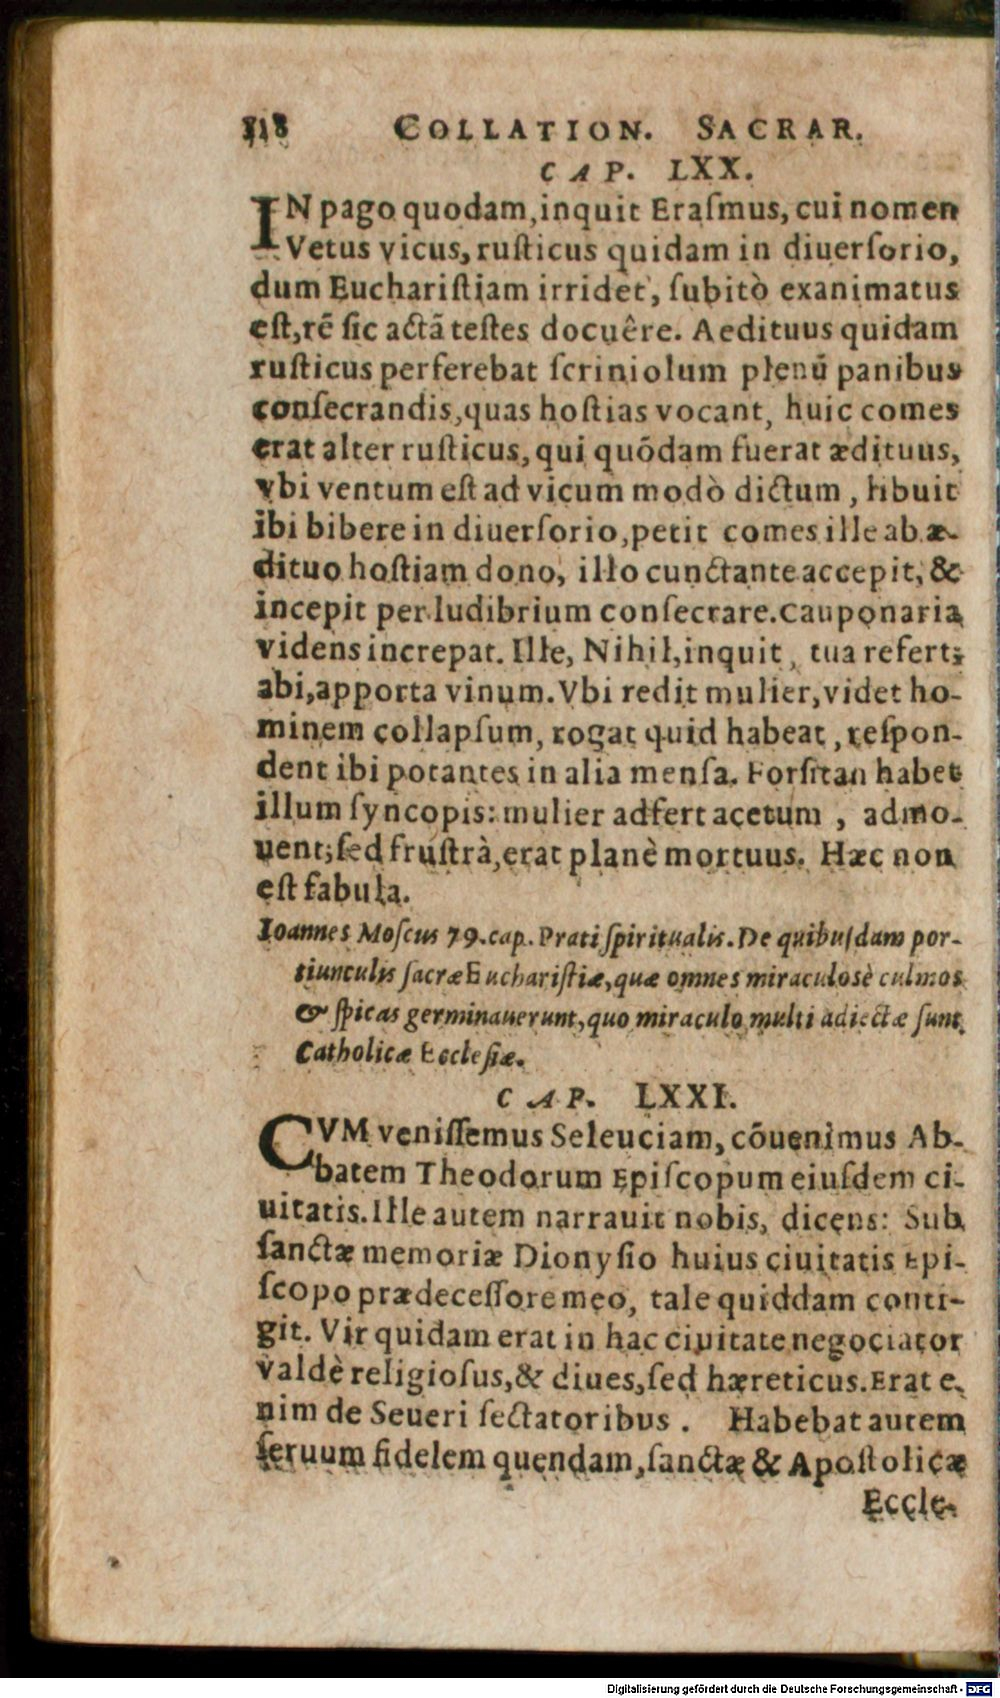 318 COLLATION. SACRAR.
CAP. LXX.
IN pago quodam, inquit Eraſmus, cui nomen
Vetus vicus, ruſticus quidam in diuerſorio,
dum Euchariſtiam irridet, ſubitò exanimatus
eſt, rē ſic actā teſtes docuêre. Aedituus quidam
ruſticus perferebat ſcriniolum plenū panibus
conſecrandis, quas hoſtias vocant, huic comes
erat alter ruſticus, qui quōdam fuerat ædituus,
vbi ventum eſt ad vicum modò dictum, libuit
ibi bibere in diuerſorio, petit comes ille ab æ-
dituo hoſtiam dono, illo cunctante accepit, &
incepit per ludibrium conſecrare. Cauponaria
videns increpat. Ille, Nihil, inquit, tua refert;
abi, apporta vinum. Vbi redit mulier, videt ho-
minem collapſum, rogat quid habeat, reſpon-
dent ibi potantes in alia menſa. Forſitan habet
illum ſyncopis: mulier adfert acetum, admo-
uent; ſed fruſtrà, erat planè mortuus. Hæc non
eſt fabula.
Ioannes Moſcus 79. cap. Prati ſpiritualis. De quibuſdam por-
tiunculis ſacræ Euchariſtiæ, quæ omnes miraculosè culmos
& ſpicas germinauerunt, quo miraculo multi adiectæ ſunt
Catholicæ Eccleſiæ.
CAP. LXXI.
CVM veniſſemus Seleuciam, cōuenimus Ab-
batem Theodorum Epiſcopum eiuſdem ci-
uitatis. Ille autem narrauit nobis, dicens: Sub
ſanctæ memoriæ Dionyſio huius ciuitatis Epi-
ſcopo prædeceſſore meo, tale quiddam conti-
git. Vir quidam erat in hac ciuitate negociator
valdè religioſus, & diues, ſed hæreticus. Erat e-
nim de Seueri ſectatoribus. Habebat autem
ſeruum fidelem quendam, ſanctæ & Apoſtolicæ
Eccle-
Digitalisierung gefördert durch die Deutsche Forschungsgemeinschaft - DFG